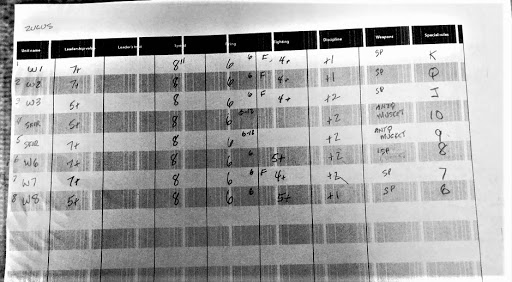 ZULUS
Unit name Leadership value Leader's Speed Firing Fighting Discipline Weapons Special rules
1 W1 7+ 8" 6 6 F. 4+ +1 SP K
2 W2 7+ 8 6 6 F 4+ +1 SP Q
3 W3 5+ 8 6 6 F 4+ +2 SP J
4 SKIR 5+ 8 6 6-18 +2 ANTQ MUSKET 10
5 SKIR 7+ 8 6 6-18 +2 ANTQ MUSKET 9
6 W6 7+ 8 6 6 5+ +2 SP 8
7 W7 7+ 8 6 6 F 4+ +2 SP 7
8 W8 5+ 8 6 6 5+ +1 SP 6